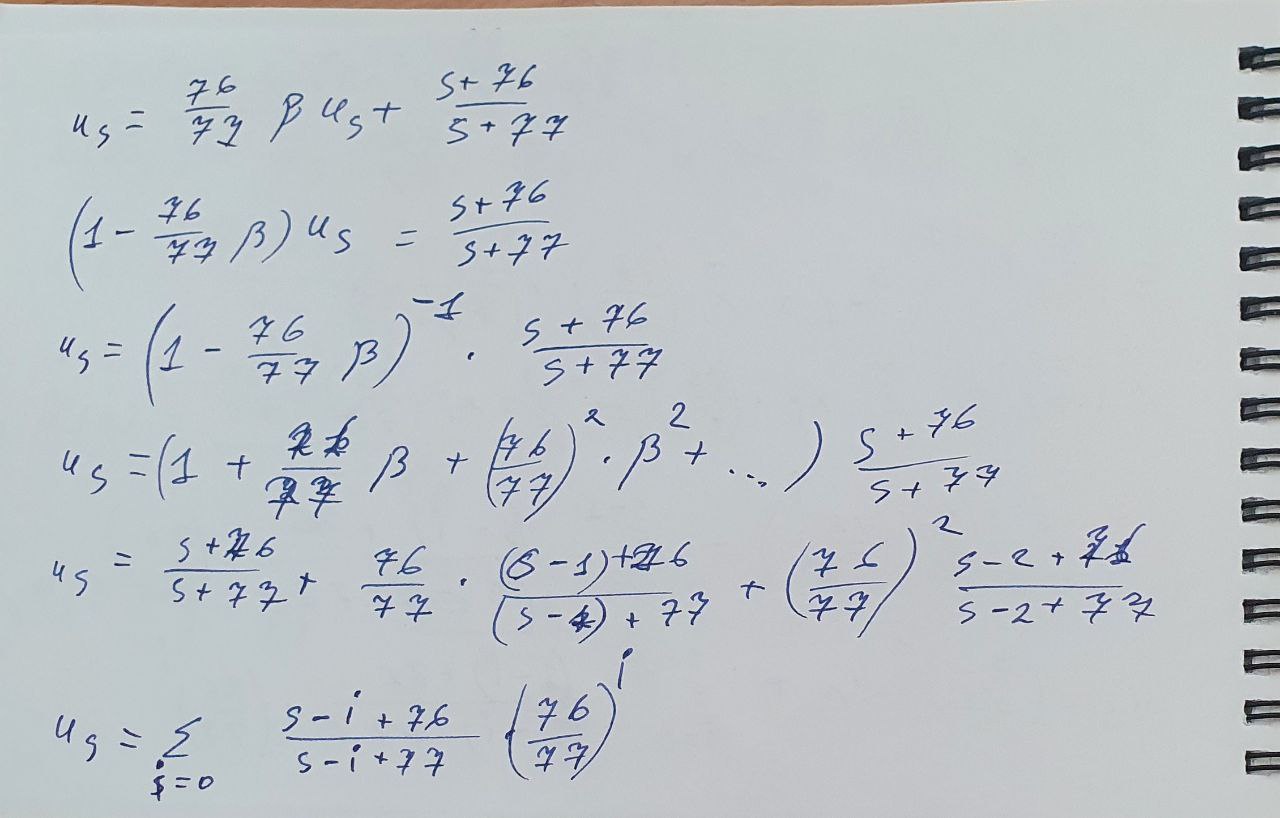 u_s = 76/77 β u_s + s+76/s+77
(1 - 76/77 β) u_s = s+76/s+77
u_s = (1 - 76/77 β)^-1 · s+76/s+77
u_s = (1 + 76/77 β + (76/77)^2 · β^2 + ...) s+76/s+77
u_s = s+76/s+77 + 76/77 · (s-1)+76/(s-1)+77 + (76/77)^2 s-2+76/s-2+77
u_s = Σ i=0 s-i+76/s-i+77 · (76/77)^i